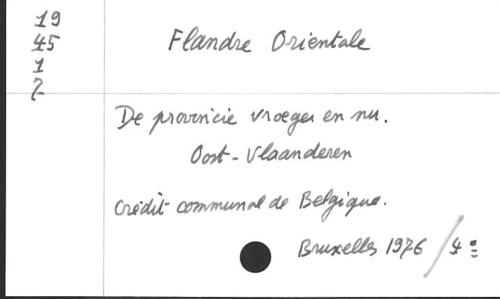 19
45
1
2
Flandre Orientale
De provincie vroeger en nu.
Oost-Vlaanderen
Crédit communal de Belgique.
Bruxelles 1976 / 4°